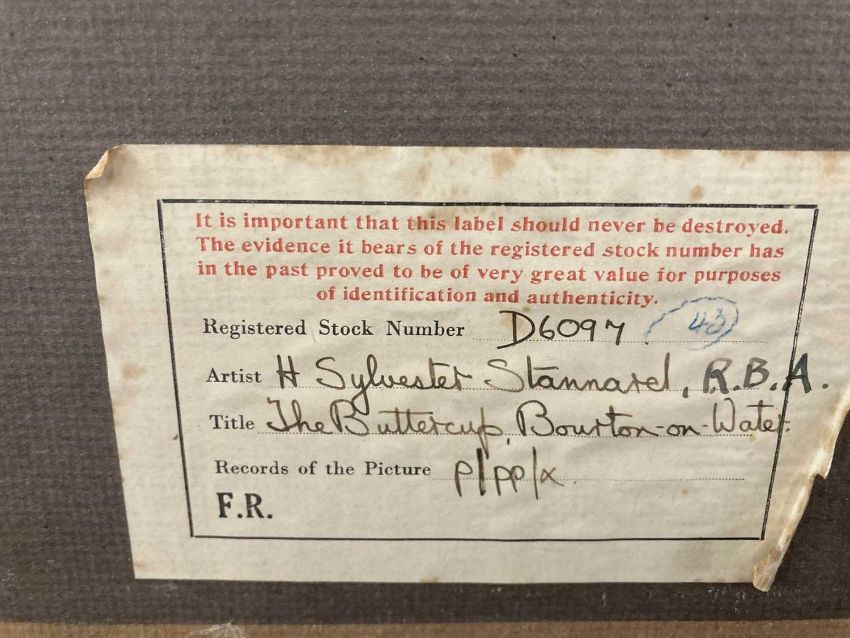 It is important that this label should never be destroyed.
The evidence it bears of the registered stock number has
in the past proved to be of very great value for purposes
of identification and authenticity.
Registered Stock Number D6097 43
Artist H Sylvester Stannard, R.B.A.
Title The Buttercup, Bourton-on-Water.
Records of the Picture p/pp/x.
F.R.